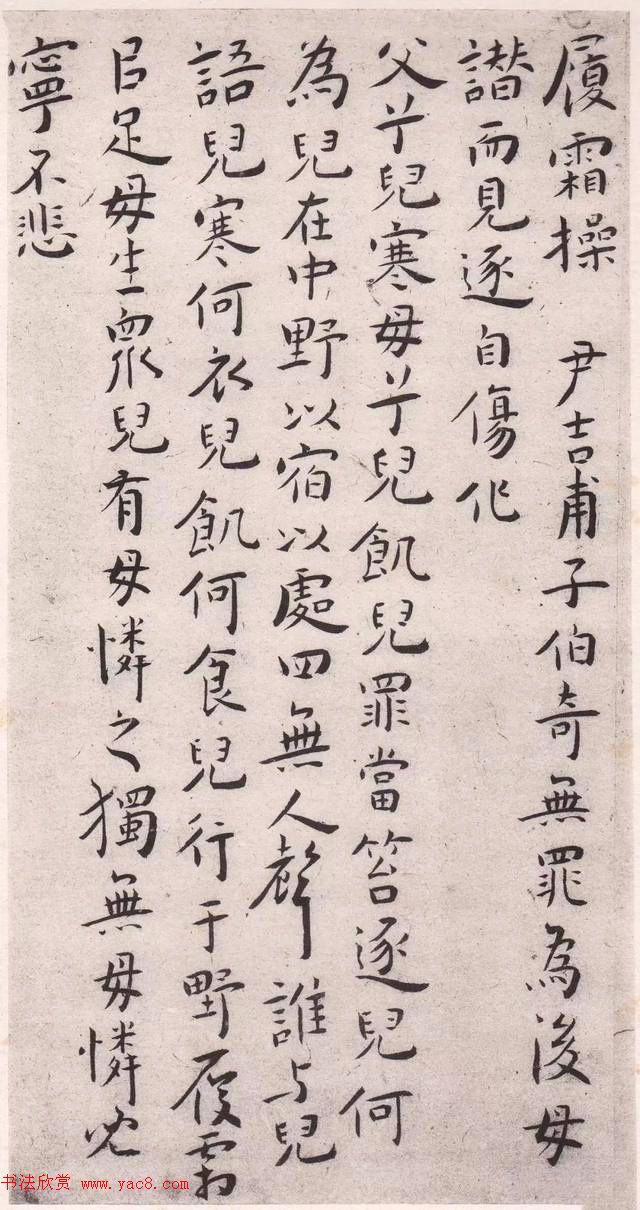 履霜操 尹吉甫子伯奇無罪為後母
譖而見逐自傷作
父兮兒寒母兮兒飢兒罪當笞逐兒何
為兒在中野以宿以處四無人聲誰与兒
語兒寒何衣兒飢何食兒行于野履霜
㠯足母生眾兒有母憐之獨無母憐兒
寧不悲
书法欣赏 www.yac8.com